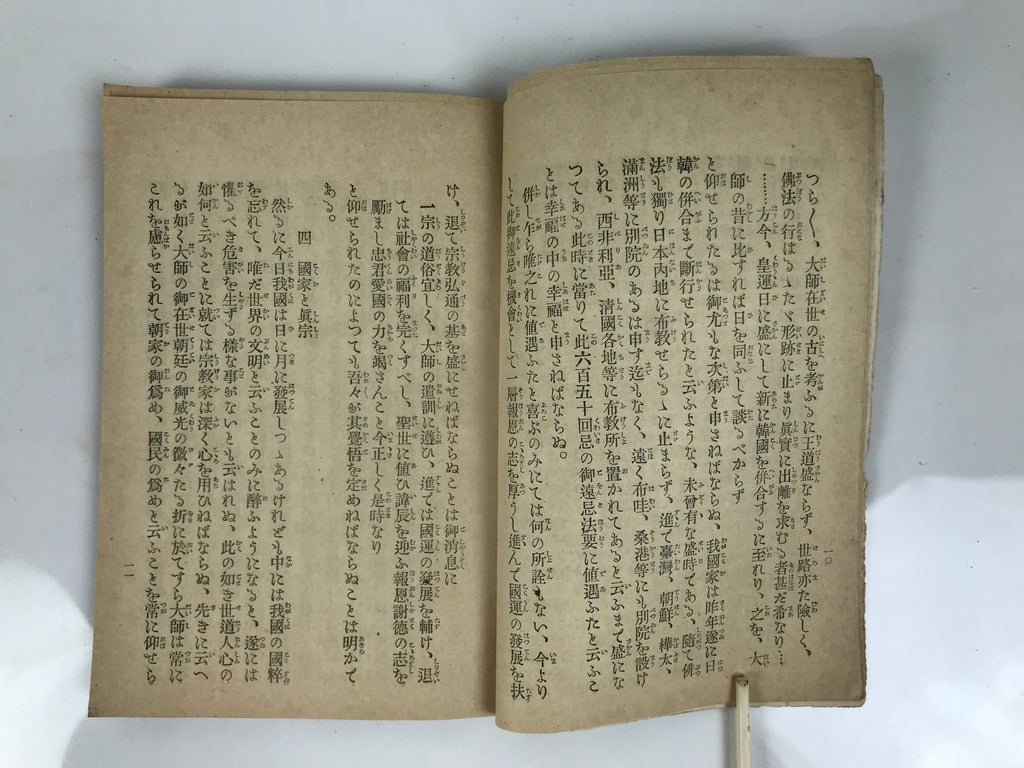 つら〱、大師在世の古を考ふるに王道盛ならず、世路亦た險しく、
佛法の行はるゝたゞ形跡に止まり眞實に出離を求むる者甚だ希なり…
……方今、皇運日に盛にして新に韓國を併合するに至れり、之を、大
師の昔に比すれば日を同ふして談るべからず
と仰せられたるは御尤もな次第と申さねばならぬ、我國家は昨年遂に日
韓の併合まで斷行せられたと云ふような、未曾有な盛時である、隨て佛
法も獨り日本内地に布教せらるゝに止まらず、進で臺灣、朝鮮、樺太、
滿洲等に別院のあるは申す迄もなく、遠く布哇、桑港等にも別院を設け
られ、西非利亞、清國各地等に布教所を置かれてあると云ふまで盛にな
つてある此時に當りて此六百五十回忌の御遠忌法要に値遇ふたと云ふこ
とは幸福の中の幸福と申さねばならぬ。
併し乍ら唯之れに値遇ふたと喜ぶのみにては何の所詮もない、今より
して此御遠忌を機會として一層報恩の志を厚うし進んで國運の發展を扶
一〇
け、退て宗教弘通の基を盛にせねばならぬことは御消息に
一宗の道俗宜しく、大師の遺訓に遵ひ、進ては國運の發展を輔け、退
ては社會の福利を完くすべし、聖世に値ひ諱辰を迎ふ報恩謝德の志を
勵まし忠君愛國の力を竭さんこと今正しく是時なり
と仰せられたのによつても吾々が其覺悟を定めねばならぬことは明かで
ある。
四 國家と眞宗
然るに今日我國は日に月に發展しつゝあるけれども中には我國の國粹
を忘れて、唯だ世界の文明と云ふことのみに醉ふようになると、遂には
懼るべき危害を生ずる樣な事がないとも云はれぬ、此の如き世道人心の
如何と云ふことに就ては宗教家は深く心を用ひねばならぬ、先きに云へ
るが如く大師の御在世朝廷の御威光の微々たる折に於てすら大師は常に
これを慮らせられて朝家の御爲め、國民の爲めと云ふことを常に仰せら
一一